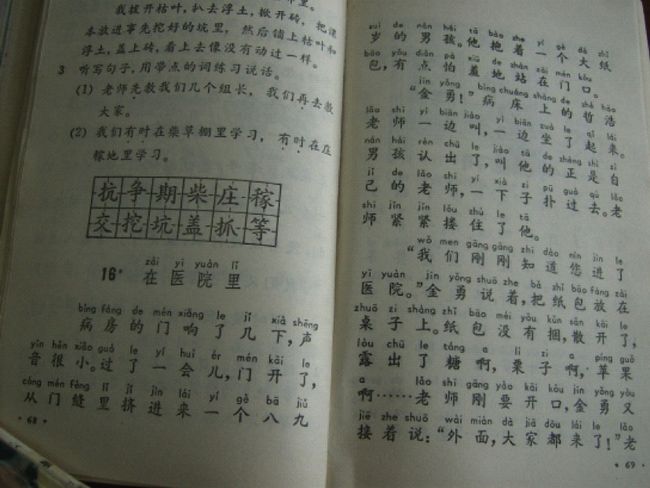 我拔开枯叶,扒去浮土,掀开砖,把课
本放进事先挖好的坑里,然后铺上枯叶和
浮土,盖上砖,看上去像没有动过一样。
3 听写句子,用带点的词练习说话。
(1) 老师先教我们几个组长,我们再去教
大家。
(2) 我们有时在柴草棚里学习,有时在庄
稼地里学习。
抗争期柴庄稼
交挖坑盖抓等
zài yī yuàn lǐ
16* 在医院里
bìng fáng de mén xiǎng le jǐ xià shēng
病房的门响了几下,声
yīn hěn xiǎo guò le yí huì ér mén kāi le
音很小。过了一会儿,门开了,
cóng mén fèng lǐ jǐ jìn lái yí gè bā jiǔ
从门缝里挤进来一个八九
·68·
suì de nán hái tā bào zhe yí gè dà zhǐ
岁的男孩。他抱着一个大纸
bāo yǒu diǎn pà xiū de zhàn zài mén kǒu
包,有点怕羞地站在门口。
jīn yǒng bìng chuáng shàng de zhé hào
“金勇!”病床上的哲浩
lǎo shī yì biān jiào yì biān zuò le qǐ lái
老师一边叫,一边坐了起来。
nán hái rèn chū le jiào tā de zhèng shì zì
男孩认出了,叫他的正是自
jǐ de lǎo shī yí xià zi pū guò qù lǎo
己的老师,一下子扑过去。老
shī jǐn jǐn jiē zhù le tā
师紧紧接住了他。
wǒ men gāng gāng zhī dào nín jìn le
“我们刚刚知道您进了
yī yuàn jīn yǒng shuō zhe bǎ zhǐ bāo fàng zài
医院。”金勇说着,把纸包放在
zhuō zi shàng zhǐ bāo méi yǒu kǔn sàn kāi le
桌子上。纸包没有捆,散开了,
lòu chū le táng a lì zi a píng guǒ
露出了糖啊,栗子啊,苹果
a lǎo shī gāng yào kāi kǒu jīn yǒng yòu
啊……老师刚要开口,金勇又
jiē zhe shuō wài miàn dà jiā dōu lái le lǎo
接着说:“外面,大家都来了!”老
·69·